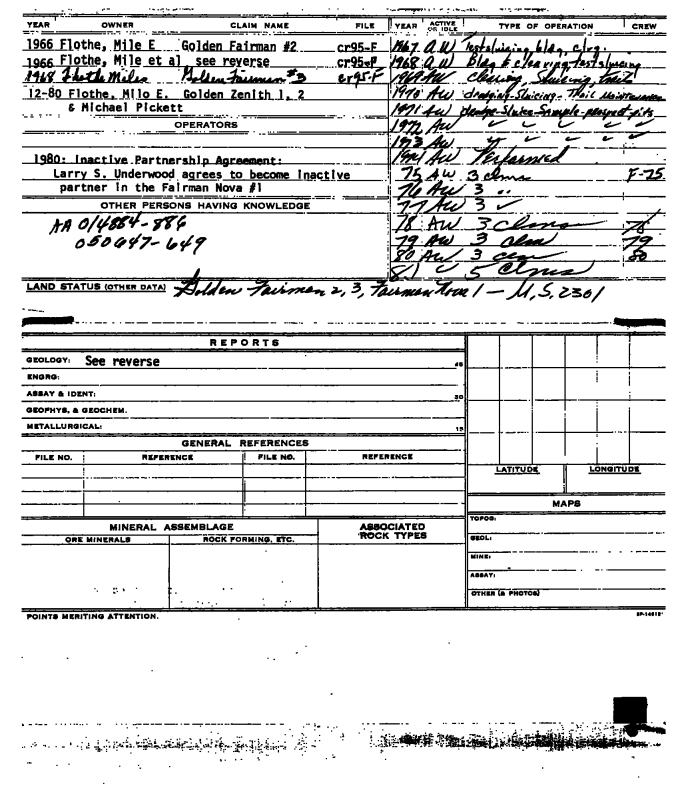 YEAR OWNER CLAIM NAME FILE
1966 Flothe, Mile E Golden Fairman #2 cr95-F
1966 Flothe, Mile et al see reverse cr95-F
1968 Flothe Miles Golden Fairman #3 cr95-F
12-80 Flothe, Milo E. Golden Zenith 1, 2
& Michael Pickett
OPERATORS
1980: Inactive Partnership Agreement:
Larry S. Underwood agrees to become inactive
partner in the Fairman Nova #1
OTHER PERSONS HAVING KNOWLEDGE
AA 014884-886
050647-649
YEAR ACTIVE OR IDLE TYPE OF OPERATION CREW
1967 A.W Testsluicing, bldg, clrg.
1968 A.W Bldg & clearing, testsluicing
1969 AW clearing, Sluicing, trail
1970 AW dredging-Sluicing-Trail Maintenance
1971 AW dredge-Sluice-Sample-prospect pits
1972 AW " " " "
1973 AW " " " "
1974 AW Performed
75 AW 3 clms F-75
76 AW 3 "
77 AW 3 ✓
78 AW 3 clms 78
79 AW 3 clm 79
80 AW 3 clm 80
81 " 5 Clms
LAND STATUS (OTHER DATA) Golden Fairman 2, 3, Fairman Nova 1 — M.S. 2301
REPORTS
GEOLOGY: See reverse 45
ENGRG:
ASSAY & IDENT: 30
GEOPHYS, & GEOCHEM.
METALLURGICAL: 15
GENERAL REFERENCES
FILE NO. REFERENCE FILE NO. REFERENCE
LATITUDE LONGITUDE
MAPS
TOPOG:
GEOL:
MINE:
ASSAY:
OTHER (& PHOTOS)
MINERAL ASSEMBLAGE
ORE MINERALS ROCK FORMING, ETC.
ASSOCIATED ROCK TYPES
POINTS MERITING ATTENTION.